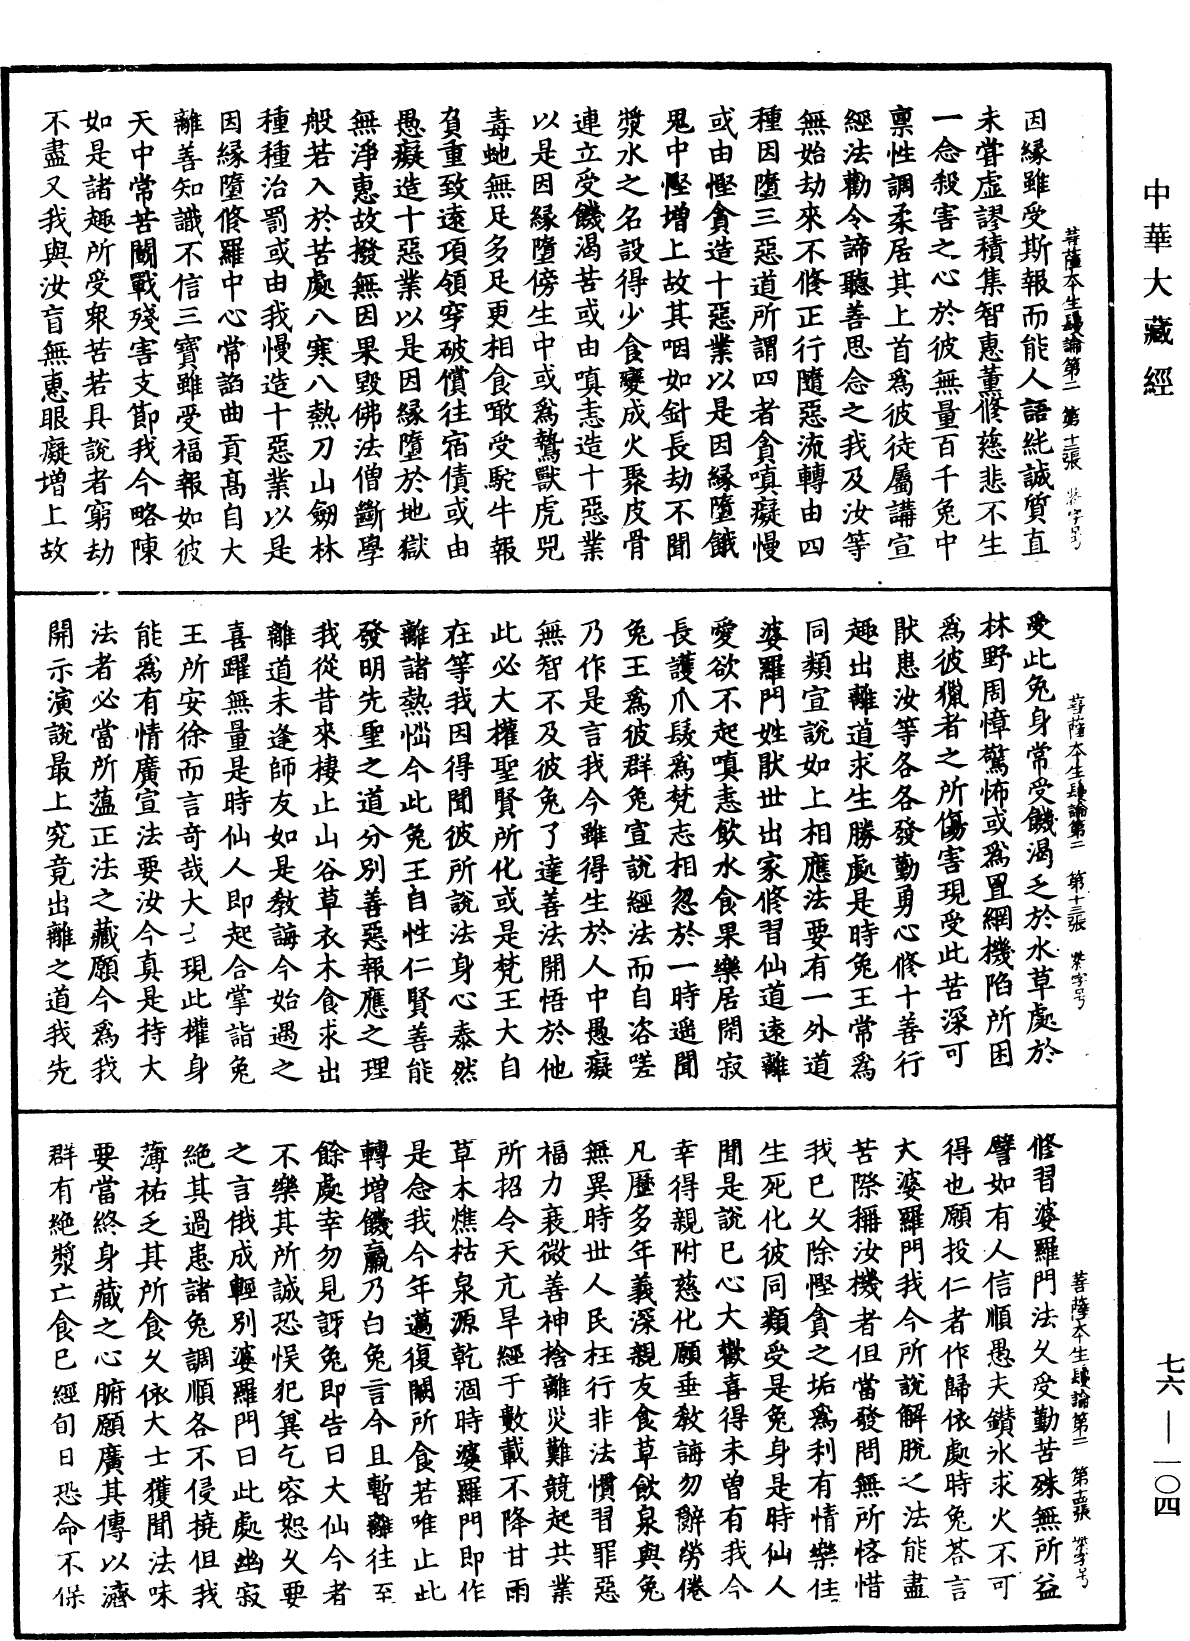 中華大藏經
菩薩本生鬘論第二 第十二張
因緣雖受斯報而能人語純誠質直
未甞虛謬積集智惠薰修慈悲不生
一念殺害之心於彼無量百千兔中
禀性調柔居其上首爲彼徒屬講宣
經法勸令諦聽善思念之我及汝等
無始劫來不修正行隨惡流轉由四
種因墮三惡道所謂四者貪嗔癡慢
或由慳貪造十惡業以是因緣墮餓
鬼中慳增上故其咽如針長劫不聞
漿水之名設得少食變成火聚皮骨
連立受饑渴苦或由嗔恚造十惡業
以是因緣墮傍生中或爲鷙獸虎兕
毒虵無足多足更相食噉受駝牛報
負重致遠項領穿破償往宿債或由
愚癡造十惡業以是因緣墮於地獄
無淨惠故撥無因果毀佛法僧斷學
般若入於苦處八寒八熱刀山劒林
種種治罰或由我慢造十惡業以是
因緣墮修羅中心常諂曲貢髙自大
離善知識不信三寶雖受福報如彼
天中常苦鬭戰殘害支節我今略陳
如是諸趣所受衆苦若具說者窮劫
不盡又我與汝盲無惠眼癡增上故
菩薩本生鬘論第二 第十三張
受此兔身常受饑渴乏於水草處於
林野周慞驚怖或爲罝網機陷所困
爲彼獵者之所傷害現受此苦深可
猒患汝等各各發勤勇心修十善行
趣出離道求生勝處是時兔王常爲
同類宣說如上相應法要有一外道
婆羅門姓猒世出家修習仙道遠離
愛欲不起嗔恚飲水食果樂居閑寂
長護爪髮爲梵志相忽於一時遥聞
兔王爲彼群兔宣說經法而自咨嗟
乃作是言我今雖得生於人中愚癡
無智不及彼兔了達善法開悟於他
此必大權聖賢所化或是梵王大自
在等我因得聞彼所說法身心泰然
離諸熱惱今此兔王自性仁賢善能
發明先聖之道分別善惡報應之理
我從昔來棲止山谷草衣木食求出
離道未逢師友如是教誨今始遇之
喜躍無量是時仙人即起合掌詣兔
王所安徐而言奇哉大士現此權身
能爲有情廣宣法要汝今真是持大
法者必當所薀正法之藏願今爲我
開示演說最上究竟出離之道我先
菩薩本生鬘論第二 第十四張
修習婆羅門法久受勤苦殊無所益
譬如有人信順愚夫鑽氷求火不可
得也願投仁者作歸依處時兔荅言
大婆羅門我今所說解脫之法能盡
苦際稱汝機者但當發問無所悋惜
我已久除慳貪之垢爲利有情樂住
生死化彼同類受是兔身是時仙人
聞是說已心大歡喜得未曾有我今
幸得親附慈化願垂教誨勿辭勞倦
凡歷多年義深親友食草飲泉與兔
無異時世人民枉行非法慣習罪惡
福力衰微善神捨離災難競起共業
所招令天亢旱經于數載不降甘雨
草木燋枯泉源乾涸時婆羅門即作
是念我今年邁復闕所食若唯止此
轉增饑羸乃白兔言今且暫離往至
餘處幸勿見訝兔即告曰大仙今者
不樂其所誠恐悮犯異乞容恕久要
之言俄成輕別婆羅門曰此處幽寂
絕其過患諸兔調順各不侵撓但我
薄祐乏其所食久依大士獲聞法味
要當終身藏之心腑願廣其傳以濟
群有絕漿亡食已經旬日恐命不保
七六—一〇四